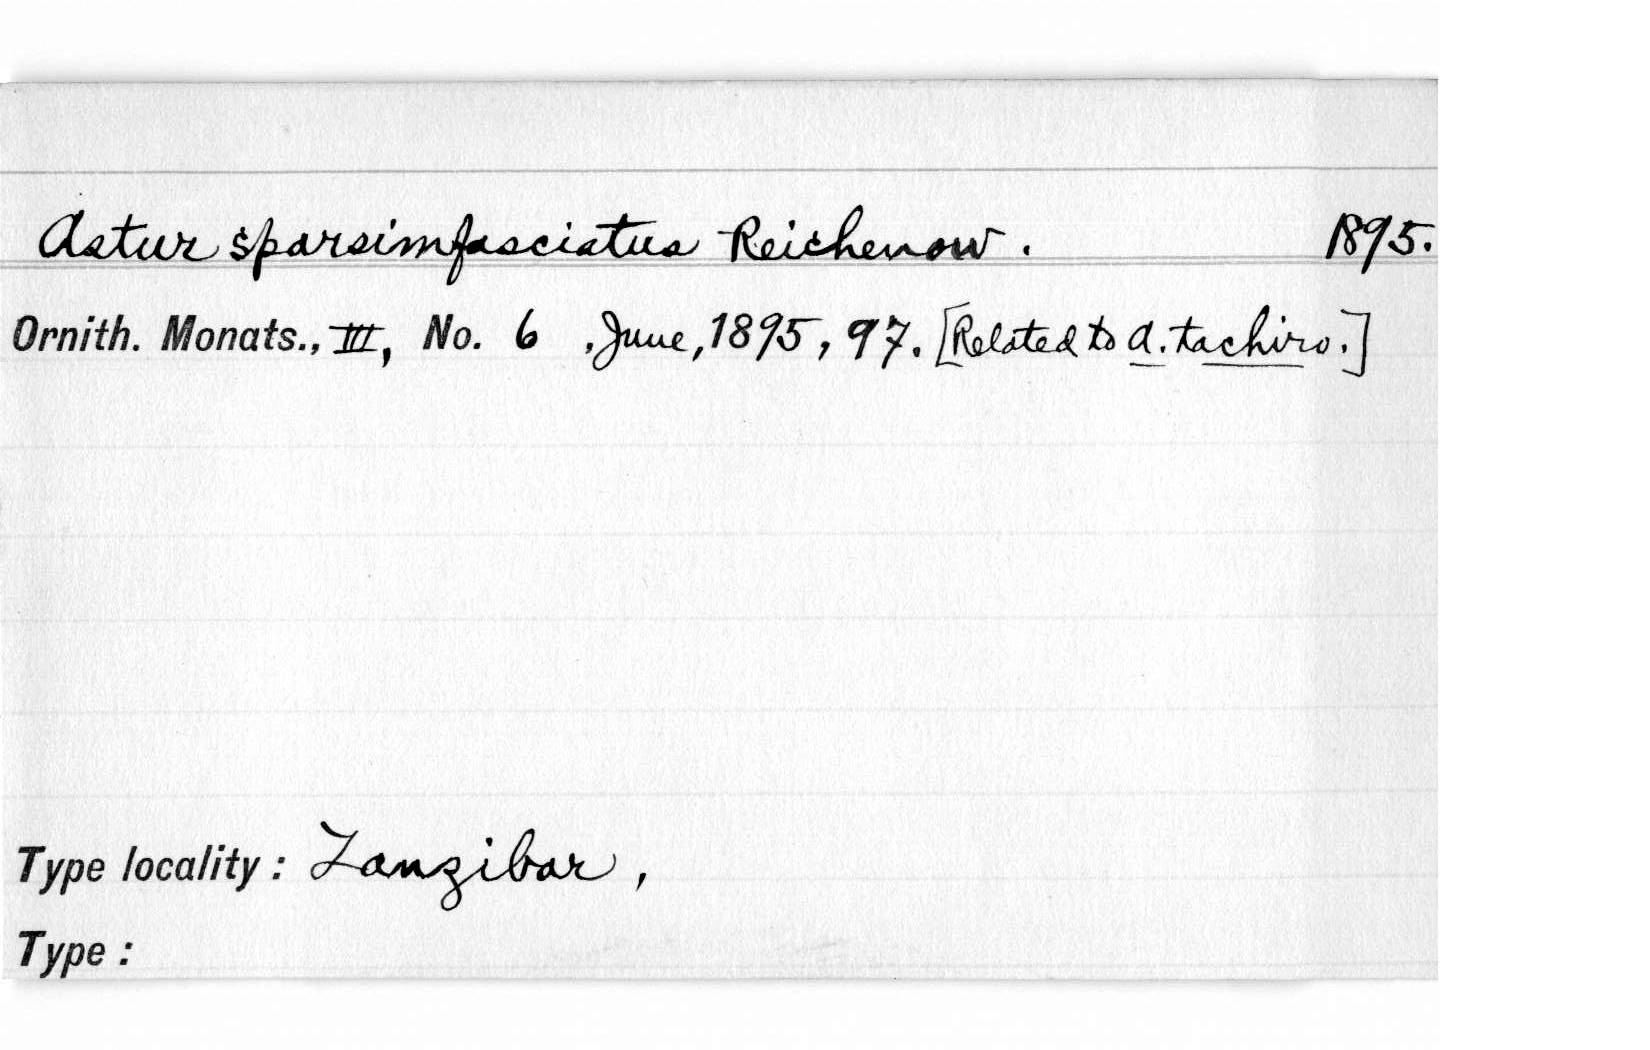 Astur sparsimfasciatus Reichenow. 1895.
Ornith. Monats., III, No. 6, June, 1895, 97. [Related to A. tachiro.]
Type locality: Zanzibar,
Type: